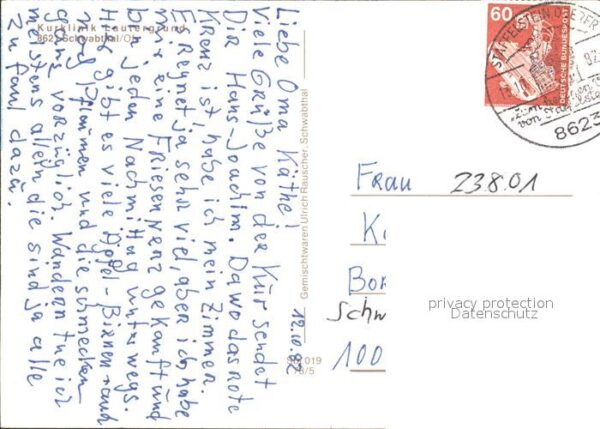 Kurklinik Lautergrund
8621 Schwabthal/Ofr.
Liebe Oma Käthe!
Viele Grüße von der Kur sendet
Dir Hans-Joachim. Da wo das rote
Kreuz ist, habe ich mein Zimmer.
Es regnet ja sehr viel, aber ich habe
mir eine Friesennerz gekauft und
bin jeden Nachmittag unterwegs.
Hier gibt es viele Äpfel-Birnen- und
Pflaumen und die schmecken
ganz vorzüglich. Wandern tue ich
meistens allein die sind ja alle
zu faul dazu.
12.10.82
SW 019
78/5
Gemischtwaren Ulrich Rauscher, Schwabthal
60
DEUTSCHE BUNDESPOST
STAFFELSTEIN, OBERFR
8623
Frau 238.01
K
Bor
Schw
100
privacy protection
Datenschutz